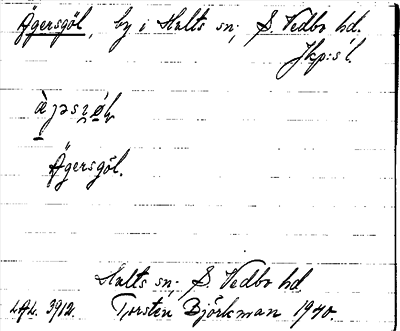 Ägersgöl, by i Hults sn; S. Vedbo hd.
Jkp:s l.
Ägersgöl.
Hults sn; S. Vedbo hd
LAL. 3912. Torsten Björkman 1940.